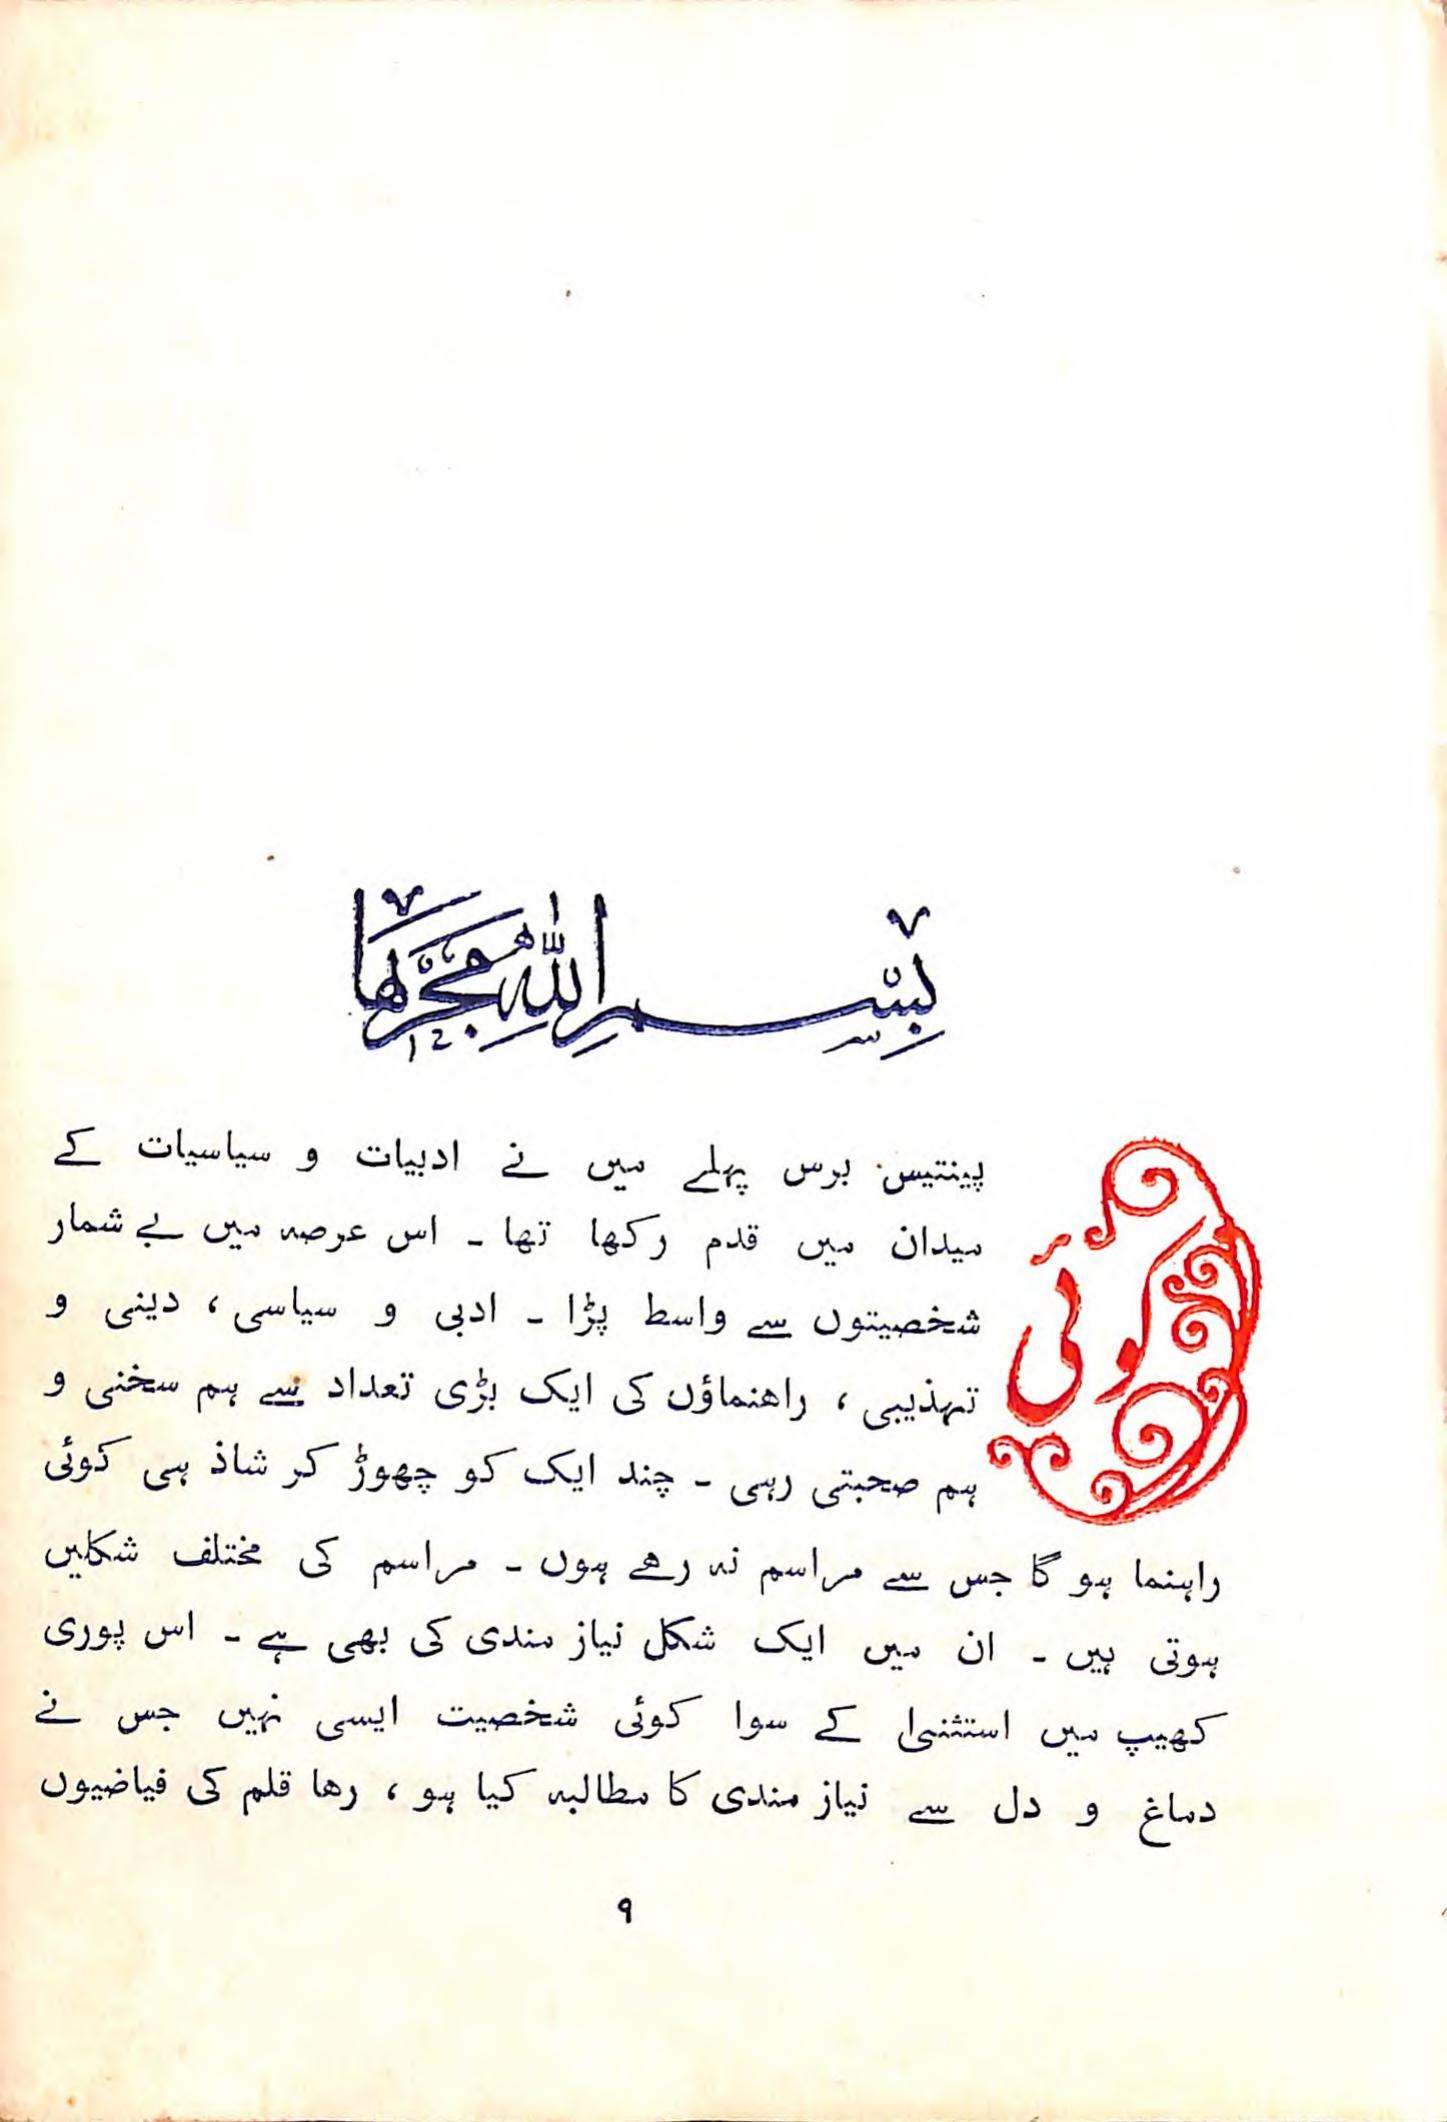 بِسْمِ اللّٰهِ مَجْرٖىهَا
کوئی
پینتیس برس پہلے میں نے ادبیات و سیاسیات کے
میدان میں قدم رکھا تھا ۔ اس عرصہ میں بے شمار
شخصیتوں سے واسط پڑا ۔ ادبی و سیاسی ، دینی و
تہذیبی ، راھنماؤں کی ایک بڑی تعداد سے ہم سخنی و
ہم صحبتی رہی ۔ چند ایک کو چھوڑ کر شاذ ہی کوئی
راہنما ہو گا جس سے مراسم نہ رھے ہوں ۔ مراسم کی مختلف شکلیں
ہوتی ہیں ۔ ان میں ایک شکل نیاز مندی کی بھی ہے ۔ اس پوری
کھیپ میں استثنیٰ کے سوا کوئی شخصیت ایسی نہیں جس نے
دماغ و دل سے نیاز مندی کا مطالبہ کیا ہو ، رھا قلم کی فیاضیوں
۹